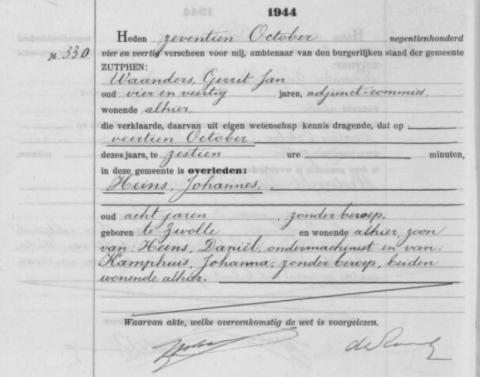 1944
№ 330
Heden zeventien October negentienhonderd
vier en veertig verscheen voor mij, ambtenaar van den burgerlijken stand der gemeente
ZUTPHEN:
Waanders, Gerrit Jan
oud vier en veertig jaren, adjunct-commies,
wonende alhier,
die verklaarde, daarvan uit eigen wetenschap kennis dragende, dat op
veertien October
dezes jaars, te zestien ure minuten,
in deze gemeente is overleden:
Heins, Johannes,
oud acht jaren, zonder beroep,
geboren te Zwolle en wonende alhier, zoon
van: Heins, Daniël, ondermachinist en van:
Kamphuis, Johanna, zonder beroep, beiden
wonende alhier.
Waarvan akte, welke overeenkomstig de wet is voorgelezen.